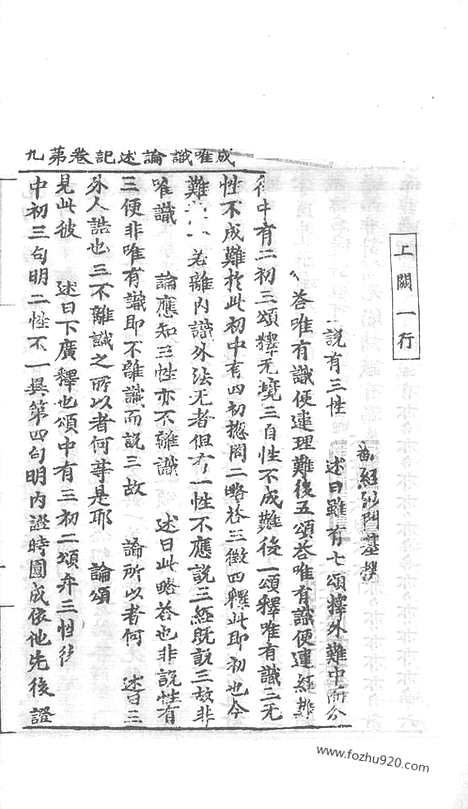 成唯識論述記卷第九
上闕一行
經沙門基撰
說有三性　述曰雖有七頌釋外難中而分
答唯有識便違理難後五頌答唯有識便違經難
中有二初三頌釋无境三自性不成難後一頌釋唯有識三无
性不成難於此初中有四初摠問二略答三徵四釋此即初也今
難　若離內識外法无者但有一性不應說三經既說三故非
唯識　論應知三性亦不離識　述曰此略答也非說性有
三便非唯有識即不離識而說三故　論所以者何　述曰三
外人詰也三不離識之所以者何等是耶　論頌
見此彼　述曰下廣釋也頌中有三初二頌弁三性後
中初三句明二性不一異第四句明內證時圓成依他先後證
www.fozhu920.com